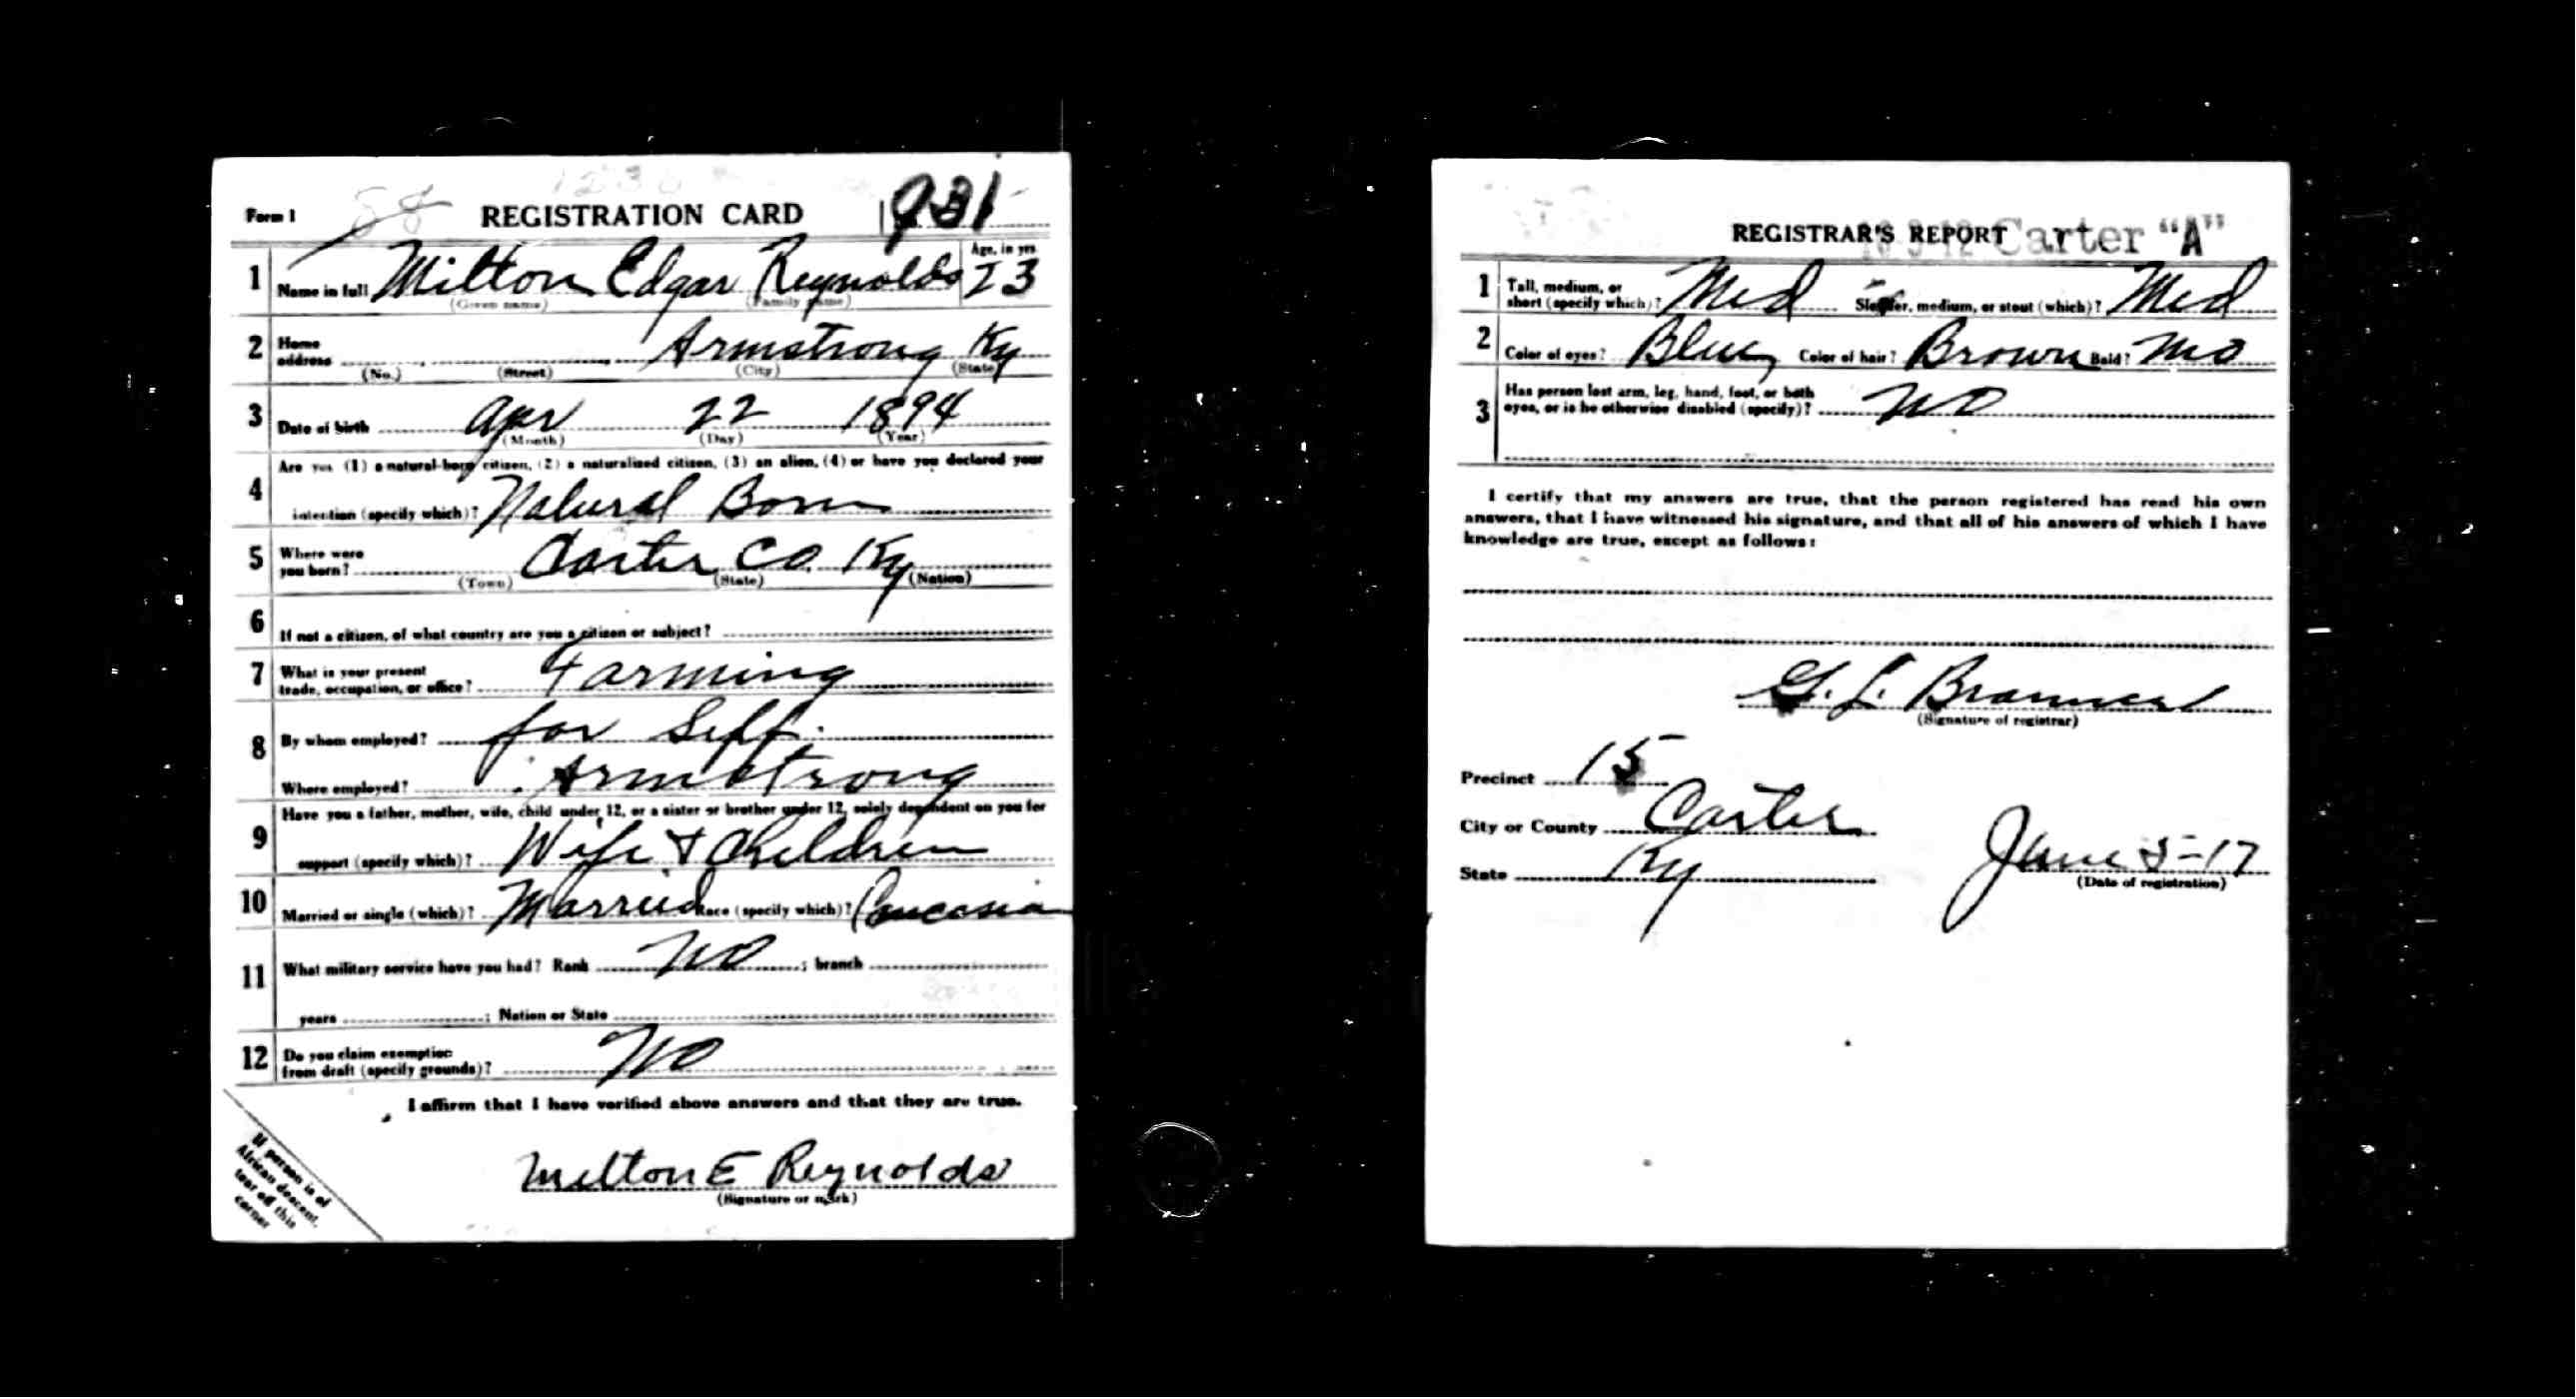 Form 1 REGISTRATION CARD 931
1 Name in full Milton Edgar Reynolds Age, in yrs 23
(Given name) (Family name)
2 Home address Armstrong Ky
(No.) (Street) (City) (State)
3 Date of birth Apr 22 1894
(Month) (Day) (Year)
4 Are you (1) a natural-born citizen, (2) a naturalized citizen, (3) an alien, (4) or have you declared your
intention (specify which)? Natural Born
5 Where were you born? Carter Co. Ky
(Town) (State) (Nation)
6 If not a citizen, of what country are you a citizen or subject?
7 What is your present trade, occupation, or office? Farming
8 By whom employed? for Self.
Where employed? Armstrong
9 Have you a father, mother, wife, child under 12, or a sister or brother under 12, solely dependent on you for
support (specify which)? Wife & Children
10 Married or single (which)? Married Race (specify which)? Caucasian
11 What military service have you had? Rank NO ; branch
years ; Nation or State
12 Do you claim exemption from draft (specify grounds)? NO
I affirm that I have verified above answers and that they are true.
Milton E Reynolds
(Signature or mark)
If person is of
African descent,
tear off this
corner
REGISTRAR'S REPORT Carter "A"
1 Tall, medium, or short (specify which)? Med Slender, medium, or stout (which)? Med
2 Color of eyes? Blue Color of hair? Brown Bald? No
3 Has person lost arm, leg, hand, foot, or both
eyes, or is he otherwise disabled (specify)? NO
I certify that my answers are true, that the person registered has read his own
answers, that I have witnessed his signature, and that all of his answers of which I have
knowledge are true, except as follows:
G. L.
(Signature of registrar)
Precinct 15
City or County Carter
State Ky
June 5-17
(Date of registration)